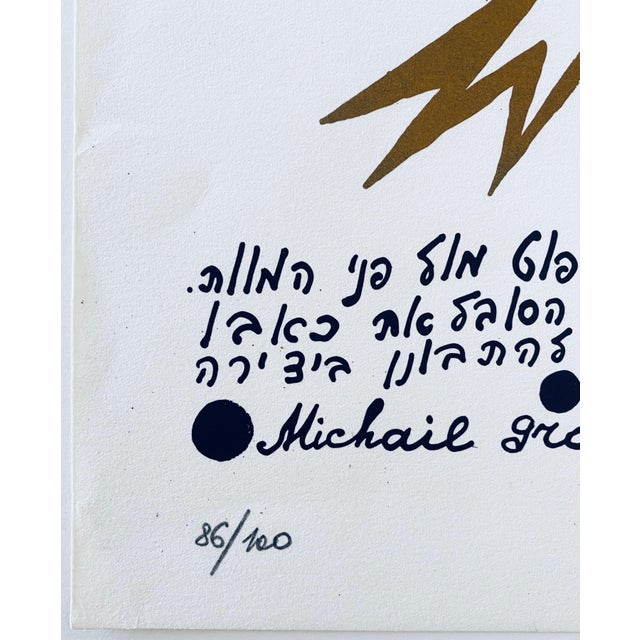 פוט מול פני המוות.
הסובל את כאבו
להתבונן ביצירה
Michail gro
86/120